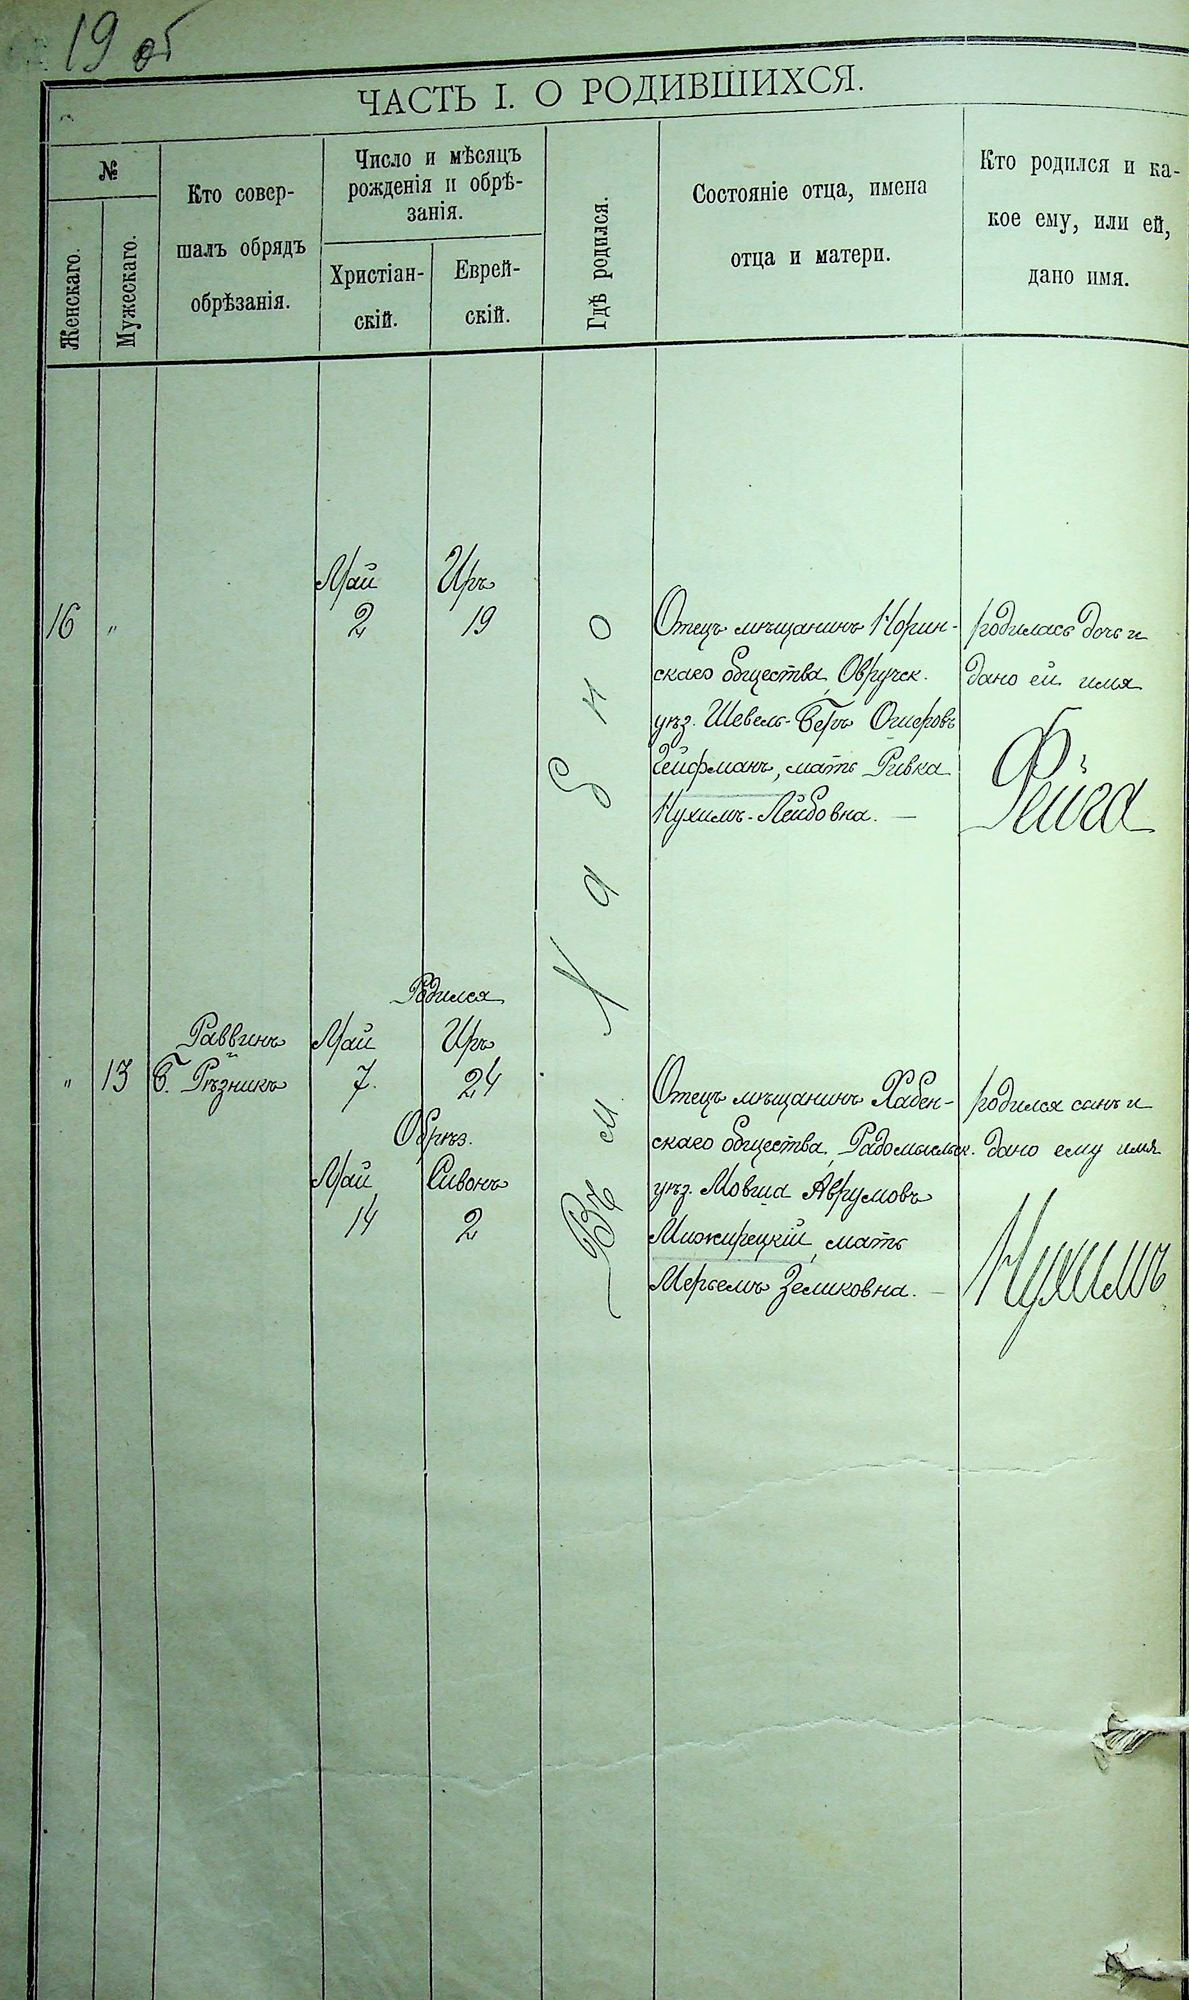 19 об
ЧАСТЬ I. О РОДИВШИХСЯ.
№
Женскаго.
Мужескаго.
Кто совер-
шалъ обрядъ
обрѣзанія.
Число и мѣсяцъ
рожденія и обрѣ-
занія.
Христіан-
скій.
Еврей-
скій.
Гдѣ родился.
Состояніе отца, имена
отца и матери.
Кто родился и ка-
кое ему, или ей,
дано имя.
Въ м. Хабно
Май Иръ
16 " 2 19
Отецъ мѣщанинъ Норин-
скаго общества, Овручск.
уѣз. Шевель-Беръ Ошеровъ
Гейфманъ, мать Ривка
Нухимъ-Лейбовна. —
родилась дочь и
дано ей имя
Фейга
Родился
Раввинъ Май Иръ
" 13 Б. Рѣзникъ 7. 24
Обрѣз.
Май Сивонъ
14 2
Отецъ мѣщанинъ Хабен-
скаго общества, Радомысльск.
уѣз. Мовша Аврумовъ
Межирецкій, мать
Мерьемъ Зеликовна. —
родился сынъ и
дано ему имя
Нухимъ